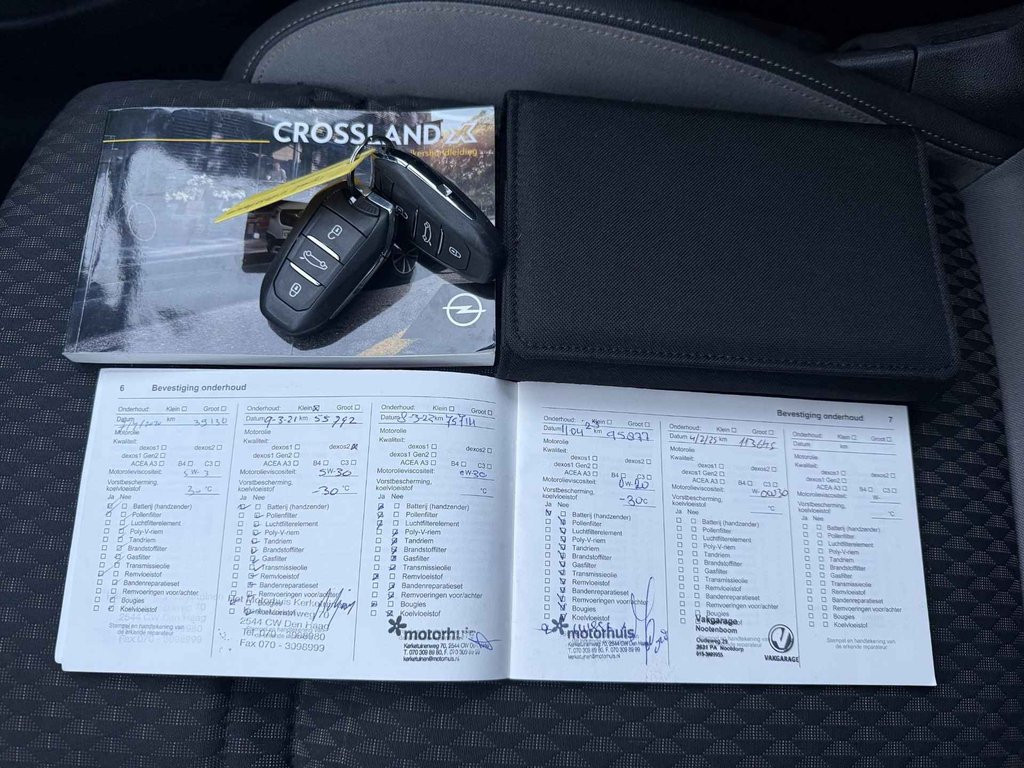 CROSSLAND X
6 Bevestiging onderhoud
Onderhoud: Klein Groot
Datum km 39130
Motorolie
Kwaliteit:
dexos1 dexos2
dexos1 Gen2
ACEA A3 B4 C3
Motorolieviscositeit: 5W-3
Vorstbescherming,
koelvloeistof °C
Ja Nee
Batterij (handzender)
Pollenfilter
Luchtfilterelement
Poly-V-riem
Tandriem
Brandstoffilter
Gasfilter
Transmissieolie
Remvloeistof
Bandenreparatieset
Remvoeringen voor/achter
Bougies
Koelvloeistof
Stempel en handtekening van
de erkende reparateur
Onderhoud: Klein Groot
Datum 9-3-21 km 55792
Motorolie
Kwaliteit:
dexos1 dexos2
dexos1 Gen2
ACEA A3 B4 C3
Motorolieviscositeit: 5W-30
Vorstbescherming,
koelvloeistof -30 °C
Ja Nee
Batterij (handzender)
Pollenfilter
Luchtfilterelement
Poly-V-riem
Tandriem
Brandstoffilter
Gasfilter
Transmissieolie
Remvloeistof
Bandenreparatieset
Remvoeringen voor/achter
Bougies
Koelvloeistof
2544 CW Den Haag
Fax 070 - 3098999
Onderhoud: Klein Groot
Datum km 75711
Motorolie
Kwaliteit:
dexos1 dexos2
dexos1 Gen2
ACEA A3 B4 C3
Motorolieviscositeit: 0W-30
Vorstbescherming,
koelvloeistof °C
Ja Nee
Batterij (handzender)
Pollenfilter
Luchtfilterelement
Poly-V-riem
Tandriem
Brandstoffilter
Gasfilter
Transmissieolie
Remvloeistof
Bandenreparatieset
Remvoeringen voor/achter
Bougies
Koelvloeistof
motorhuis
Kerketuinenweg 70, 2544 CW
T. 070 309 89 80, F. 070 309 89 99
kerketuinen@motorhuis.nl
Bevestiging onderhoud 7
Onderhoud: Klein Groot
Datum km 95077
Motorolie
Kwaliteit:
dexos1 dexos2
dexos1 Gen2
ACEA A3 B4 C3
Motorolieviscositeit:
Vorstbescherming,
koelvloeistof -30C
Ja Nee
Batterij (handzender)
Pollenfilter
Luchtfilterelement
Poly-V-riem
Tandriem
Brandstoffilter
Gasfilter
Transmissieolie
Remvloeistof
Bandenreparatieset
Remvoeringen voor/achter
Bougies
motorhuis
Kerketuinenweg 70, 2544 CW Den Haag
T. 070 309 89 80, F. 070 309 89 99
kerketuinen@motorhuis.nl
Onderhoud: Klein Groot
Datum 4/2/25 km 113645
Motorolie
Kwaliteit:
dexos1 dexos2
dexos1 Gen2
ACEA A3 B4 C3
Motorolieviscositeit: W- 0W30
Vorstbescherming,
koelvloeistof °C
Ja Nee
Batterij (handzender)
Pollenfilter
Luchtfilterelement
Poly-V-riem
Tandriem
Brandstoffilter
Gasfilter
Transmissieolie
Remvloeistof
Bandenreparatieset
Remvoeringen voor/achter
Bougies
Vakgarage
Nootenboom
Oudeweg 29
2631 PA Nootdorp
VAKGARAGE
Onderhoud: Klein Groot
Datum km
Motorolie
Kwaliteit:
dexos1 dexos2
dexos1 Gen2
ACEA A3 B4 C3
Motorolieviscositeit: W-
Vorstbescherming,
koelvloeistof °C
Ja Nee
Batterij (handzender)
Pollenfilter
Luchtfilterelement
Poly-V-riem
Tandriem
Brandstoffilter
Gasfilter
Transmissieolie
Remvloeistof
Bandenreparatieset
Remvoeringen voor/achter
Bougies
Koelvloeistof
Stempel en handtekening van
de erkende reparateur